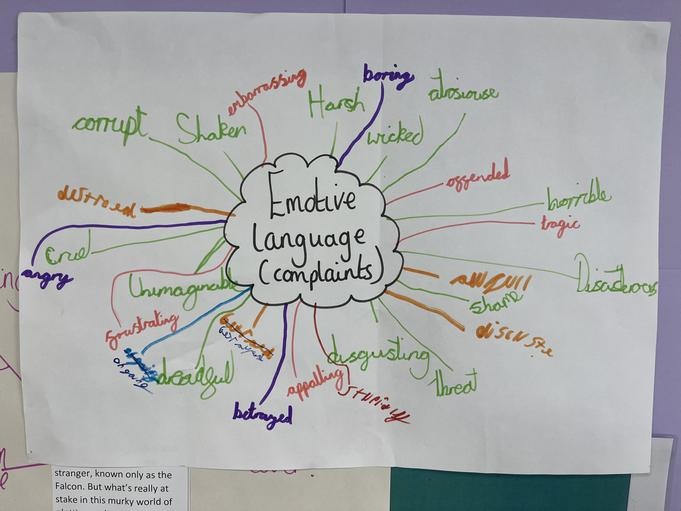 boring
embarrassing
Harsh
atrosiouse
corrupt
Shaken
wicked
offended
Emotive
language
(complaints)
horrible
tragic
cruel
angry
Unimaginable
Disasterous
awzull
shame
frustrating
dreadful
disgusting
threat
appalling
betrayed
stranger, known only as the
Falcon. But what's really at
stake in this murky world of